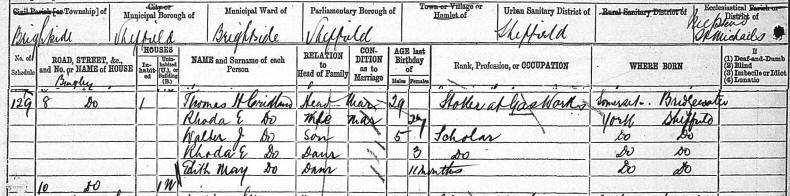 Civil Parish [or Township] of City or Municipal Borough of Municipal Ward of Parliamentary Borough of Town or Village or Hamlet of Urban Sanitary District of Rural Sanitary District of Ecclesiastical Parish or District of
Brightside Sheffield Brightside Sheffield Sheffield St Michaels
No. of Schedule ROAD, STREET, &c., and No. or NAME of HOUSE HOUSES Inhabited Uninhabited (U.), or Building (B.) NAME and Surname of each Person RELATION to Head of Family CONDITION as to Marriage AGE last Birthday of Males Females Rank, Profession, or OCCUPATION WHERE BORN If (1) Deaf-and-Dumb (2) Blind (3) Imbecile or Idiot (4) Lunatic
129 8 Do 1 Thomas H Head Mar 29 Stoker at Gas Works Somerset Bridgewater
Rhoda E Do Wife Mar 27 York Sheffield
Walter J Do Son 5 Scholar Do Do
Rhoda E Do Daur 3 Do Do Do
Edith May Do Daur 11 months Do Do
10 Do 1U